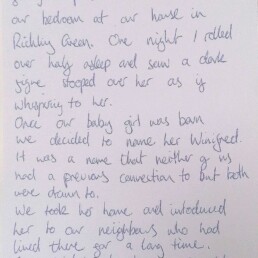 our bedroom at our house in
Rickling Green. One night I rolled
over half asleep and saw a dark
figure stooped over her as if
whispering to her.
Once our baby girl was born
we decided to name her Winifred.
It was a name that neither of us
had a previous connection to but both
were drawn to.
We took her home and introduced
her to our neighbours who had
lived there for a long time.